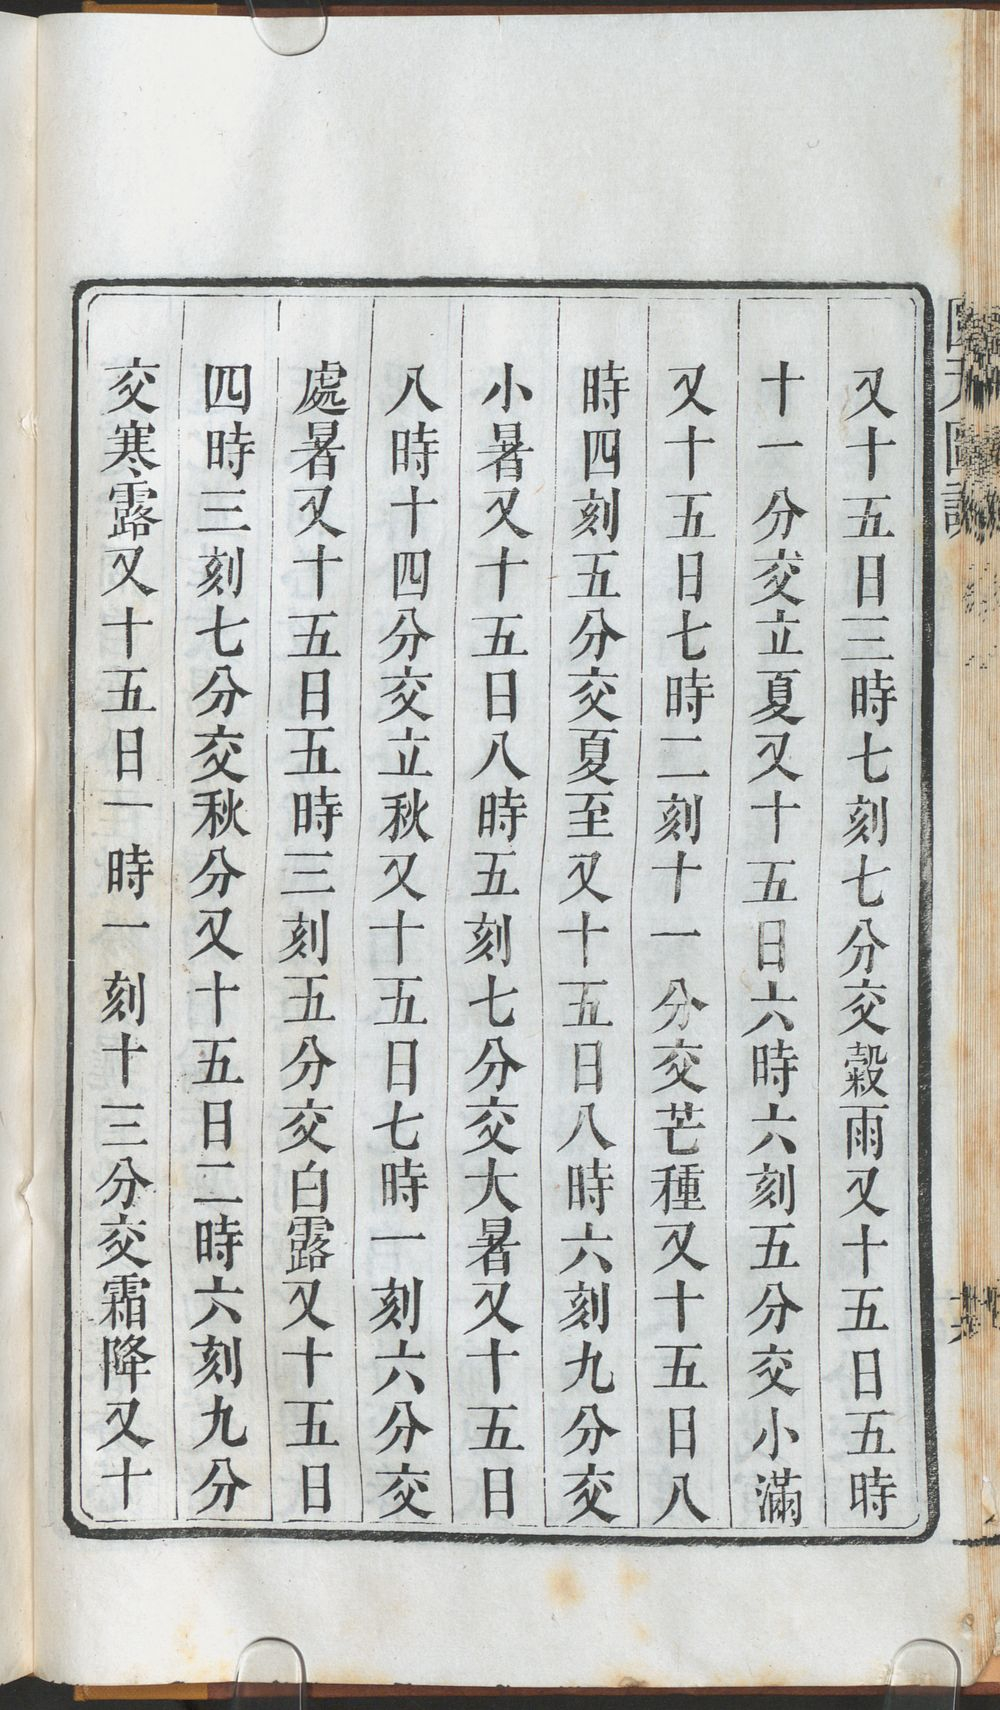 又十五日三時七刻七分交穀雨又十五日五時
十一分交立夏又十五日六時六刻五分交小滿
又十五日七時二刻十一分交芒種又十五日八
時四刻五分交夏至又十五日八時六刻九分交
小暑又十五日八時五刻七分交大暑又十五日
八時十四分交立秋又十五日七時一刻六分交
處暑又十五日五時三刻五分交白露又十五日
四時三刻七分交秋分又十五日二時六刻九分
交寒露又十五日一時一刻十三分交霜降又十